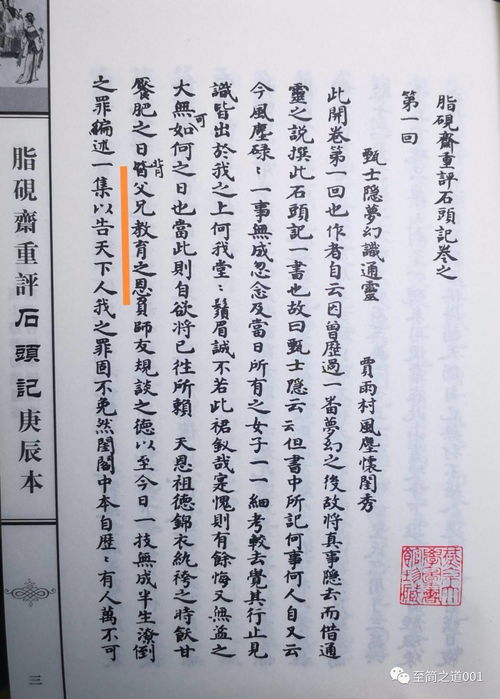 脂硯齋重評石頭記卷之
第一回
甄士隱夢幻識通靈　賈雨村風塵懷閨秀
此開卷第一回也作者自云因曾歷過一番夢幻之後故將真事隱去而借通
靈之說撰此石頭記一書也故曰甄士隱云云但書中所記何事何人自又云
今風塵碌:一事無成忽念及當日所有之女子一一細考較去覺其行止見
識皆出於我之上何我堂:鬚眉誠不若此裙釵哉寔愧則有餘悔又無益之
大無可如何之日也當此則自欲將已往所賴　天恩祖德錦衣紈袴之時飫甘
饜肥之日皆背父兄教育之恩負師友規談之德以至今日一技無成半生潦倒
之罪編述一集以告天下人我之罪固不免然閨閣中本自歷:有人萬不可
脂硯齋重評石頭記庚辰本
三
至简之道001